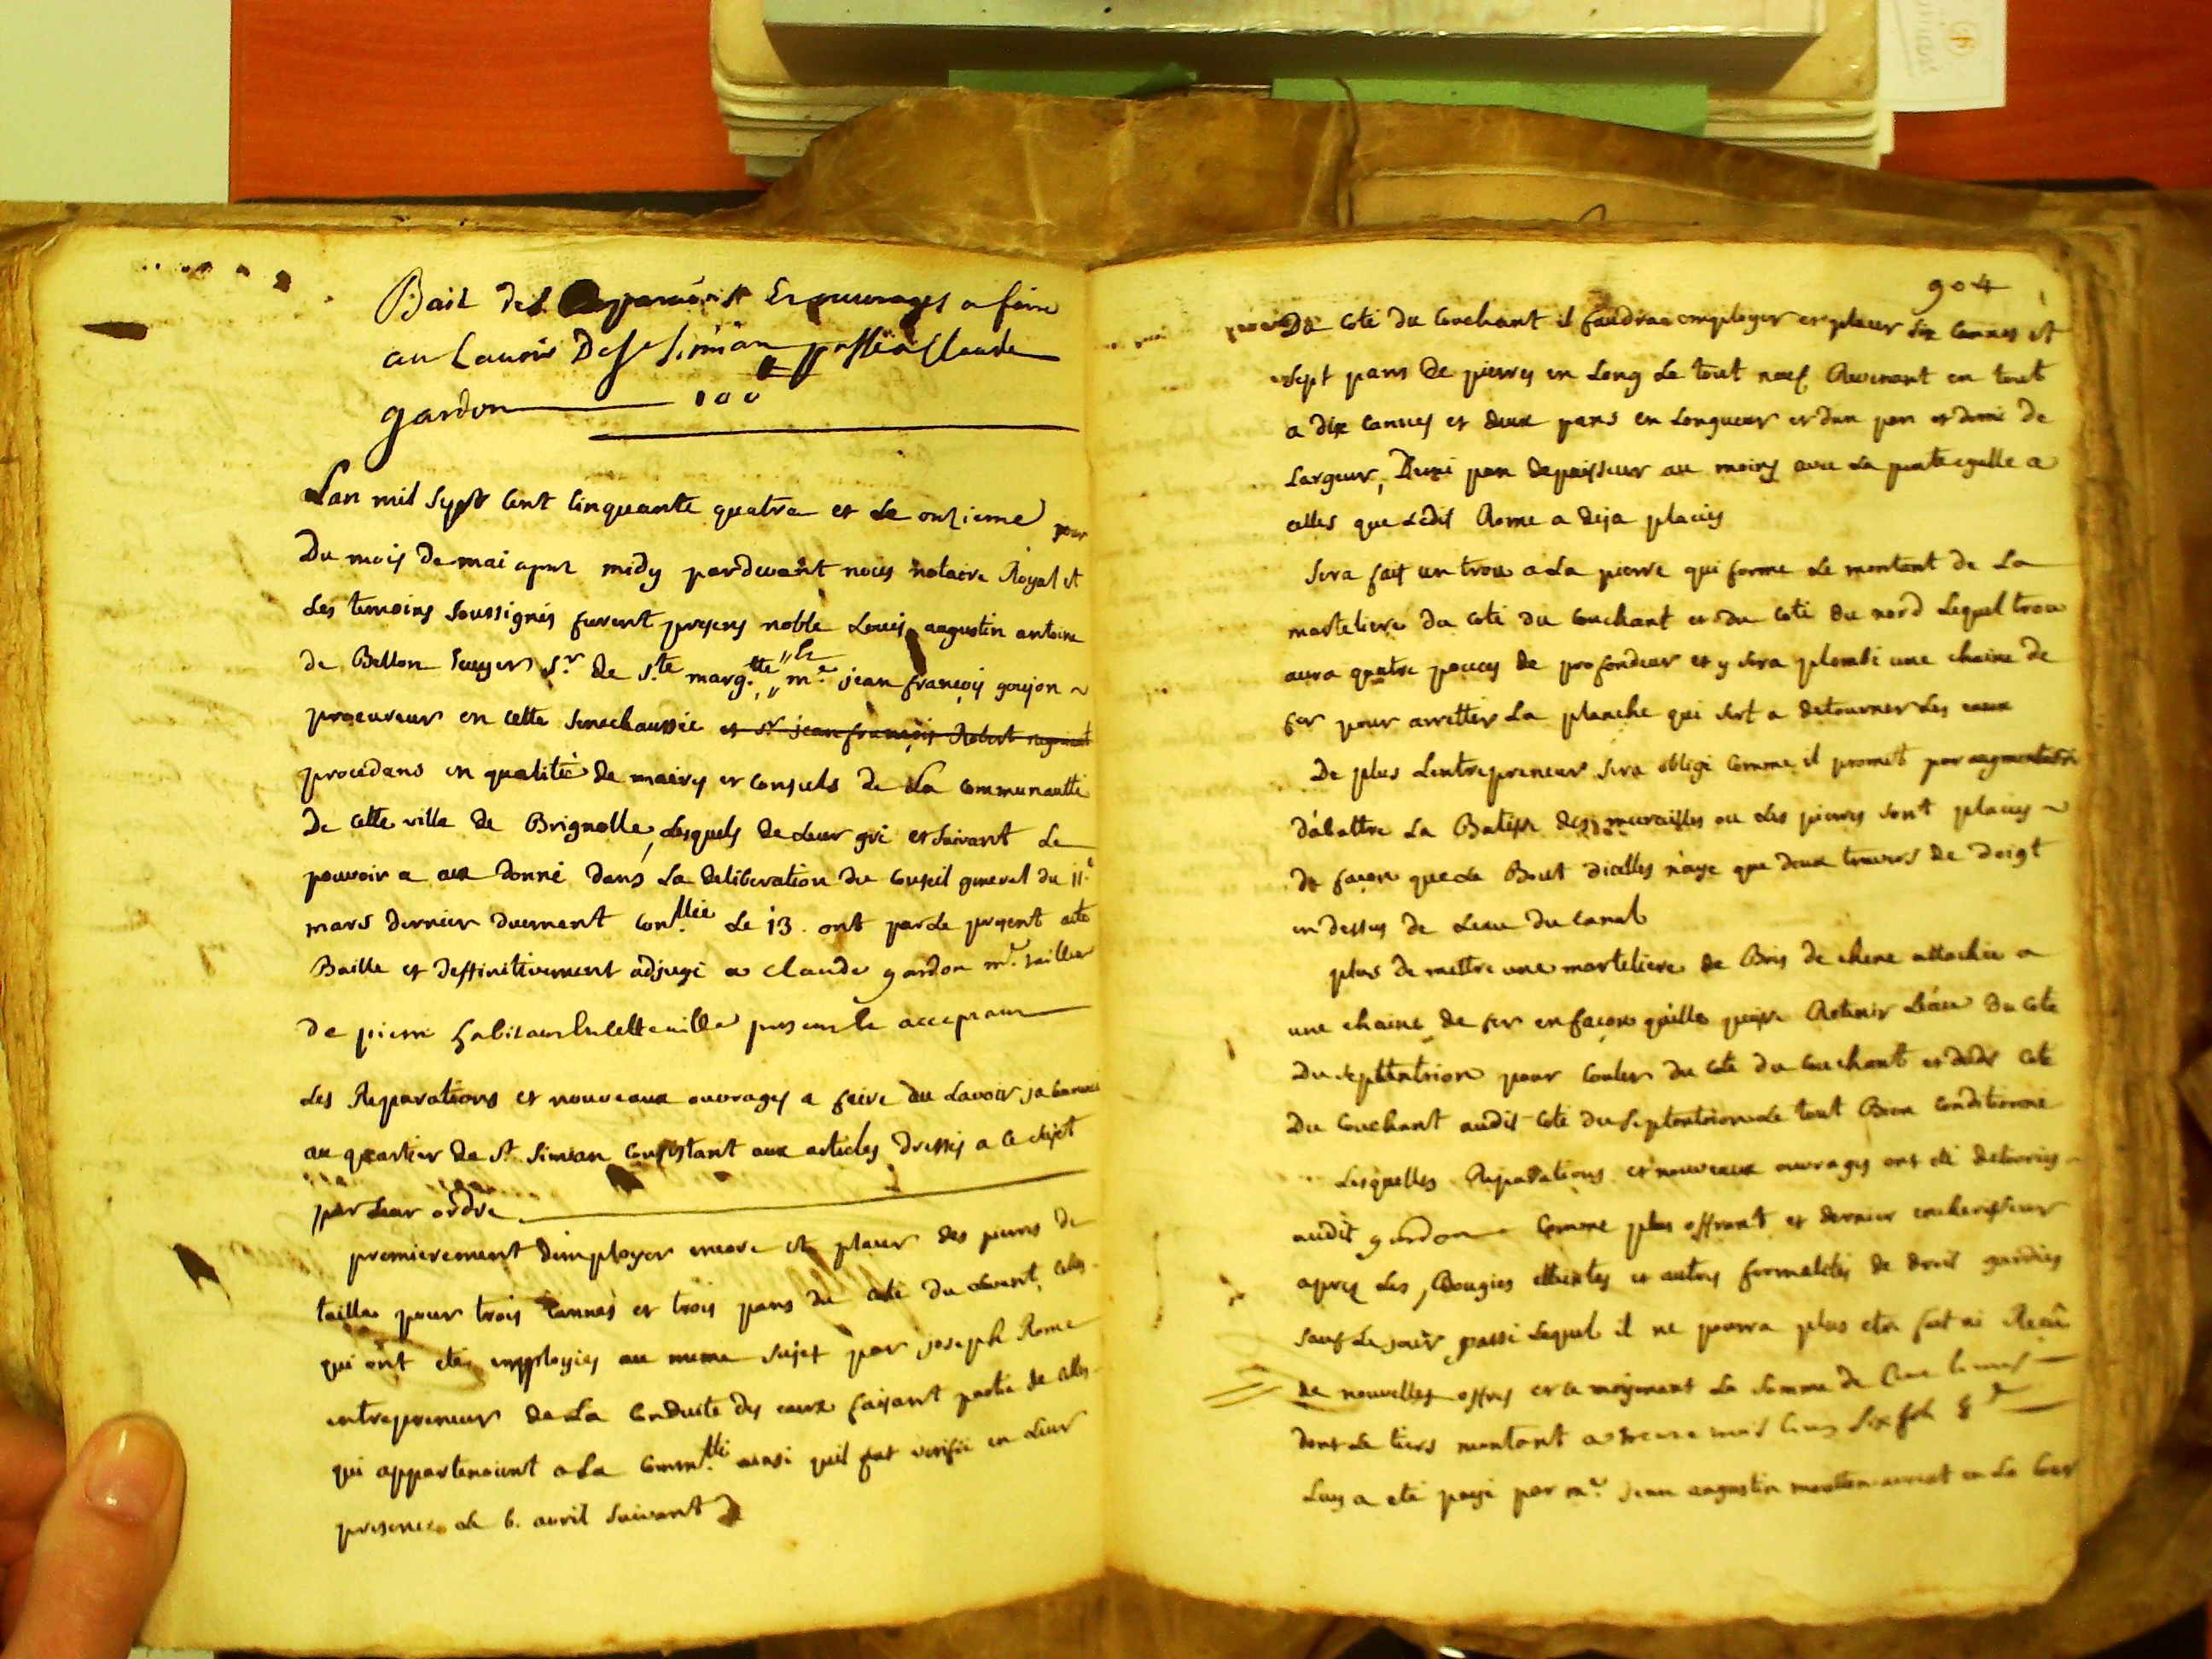 Bail des Reparations Et ouvrages a faire
au Lavoir De St Simian passé a Claude
gardon 100
Lan mil sept cent cinquante quatre et Le onzieme jour
Du mois de mai apres midy pardevant nous notaire Royal et
Les temoins soussignés furent presens noble Louis augustin antoine
de Bellon Ecuyer Sr de Ste margtte Et me jean françois goujon
procureur en cette senechaussée et Sr jean françois Robert negociant
procedans en qualité de maires et consuls de La communauté
De cette ville de Brignolle, Lesquels de Leur gré et suivant Le
pouvoir a eux donné dans La deliberation du Conseil general du 11e
mars dernier duement conllée Le 13. ont par Le present acte
Baille et deffinitivement adjugé a claude gardon me tailleur
De pierre habitant en cette ville present et acceptant
Les Reparations et nouveaux ouvrages a faire au Lavoir
au quartier de St Simian consistant aux articles dressés a ce sujet
par Leur ordre
premierement d'employer encore et placer des pierres de
taille pour trois cannes et trois pans du coté du Levant, celles
qui ont eté employées au meme sujet par joseph Rome
entrepreneur de La conduite des eaux faisant partie de celles
qui appartenoient a La Commté ainsi quil fut verifié en Leur
presence le 6. avril suivant
904
Du coté du Couchant il faudra employer et placer six cannes et
sept pans de pierres en Long Le tout neuf Revenant en tout
a dix cannes et deux pans en Longueur et dun pan et demi de
Largeur, Demi pan depaisseur au moins avec La pente egalle a
celles que Ledit Rome a deja placées
Sera fait un trou a La pierre qui forme Le montant de La
marteliere du coté du Couchant et du coté du nord Lequel trou
aura quatre pouces de profondeur et y sera plombé une chaine de
fer pour arretter La planche qui sert a detourner Les eaux
De plus Lentrepreneur sera obligé comme il promet par augmentation
d'abattre La Batisse des murailles ou Les pierres sont placées
de façon que Le Bout dicelles naye que deux travers de doigt
en dessus de Leau du canal
plus de mettre une marteliere de Bois de chene attachée a
une chaine de fer en façon quelle puisse Retenir Leau Du coté
Du septentrion pour couler du coté du Couchant et dudit coté
Du Couchant audit coté du septentrion Le tout Bien conditionné
Lesquelles Reparations et nouveaux ouvrages ont eté delivrées
audit gardon Comme plus offrant et dernier encherisseur
apres Les Bougies eteintes et autres formalités de droit gardées
sauf Le jour passé Lequel il ne pourra plus etre fait ni Reçu
de nouvelles offres et ce moyenant La somme de Cent livres
dont Le tiers montant a trente trois livres six sols 8 d
Luy a eté payé par me jean augustin